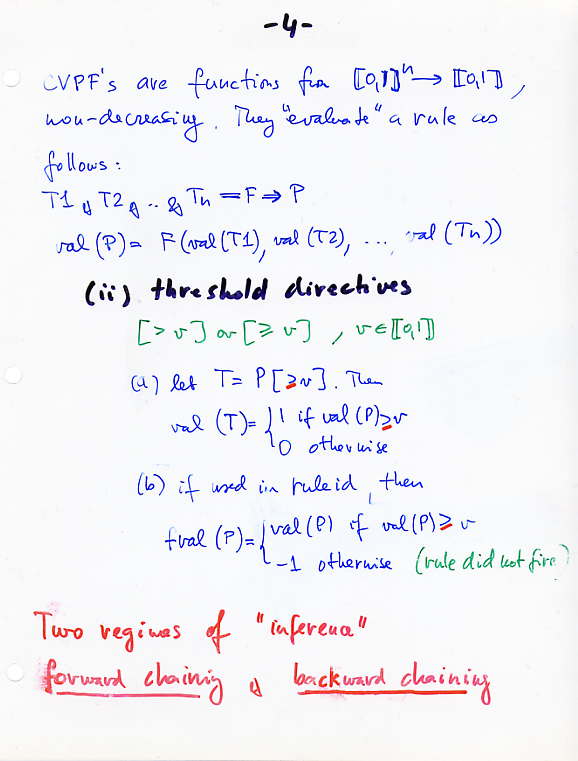 -4-
CVPF's are functions from [[0,1]]ⁿ → [[0,1]] ,
non-decreasing. They "evaluate" a rule as
follows :
T1 & T2 & .. & Tn = F ⇒ P
val (P) = F(val(T1), val (T2), ..., val (Tn))
(ii) threshold directives
[> v] or [≥ v] , v ∈ [[0,1]]
(a) let T = P [≥v]. Then
val (T) = { 1 if val (P) ≥ v
0 otherwise
(b) if used in ruleid, then
fval (P) = { val (P) if val(P) ≥ v
-1 otherwise (rule did not fire)
Two regimes of "inference"
forward chaining & backward chaining